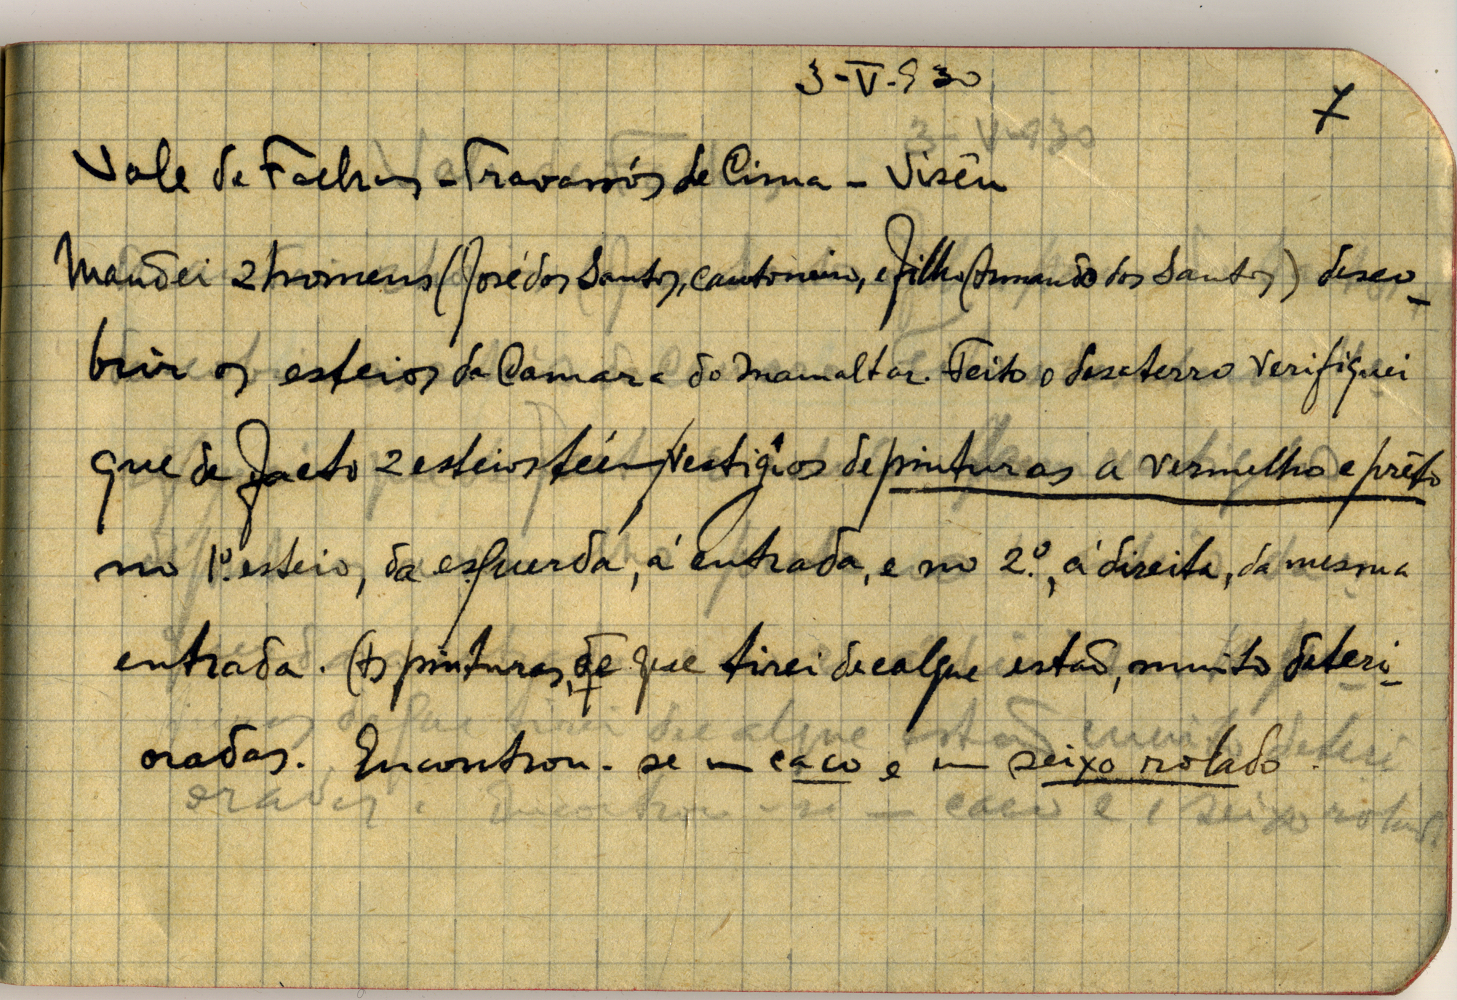 3-V-930
7
Vale de Fachas - Travassós de Cima - Visëu
Mandei 2 homens (José dos Santos, cantoneiro, e filho Armando dos Santos) desco-
brir os esteios da Camara do mamaltar. Feito o desaterro verifiquei
que de facto 2 esteios téém vestigios de pinturas a vermelho e prêto
no 1º. esteio, da esquerda, á entrada, e no 2.º, á direita, da mesma
entrada. (As pinturas, de que tirei decalque estão, muito deteri-
oradas. Encontrou-se um caco e um seixo rolado.